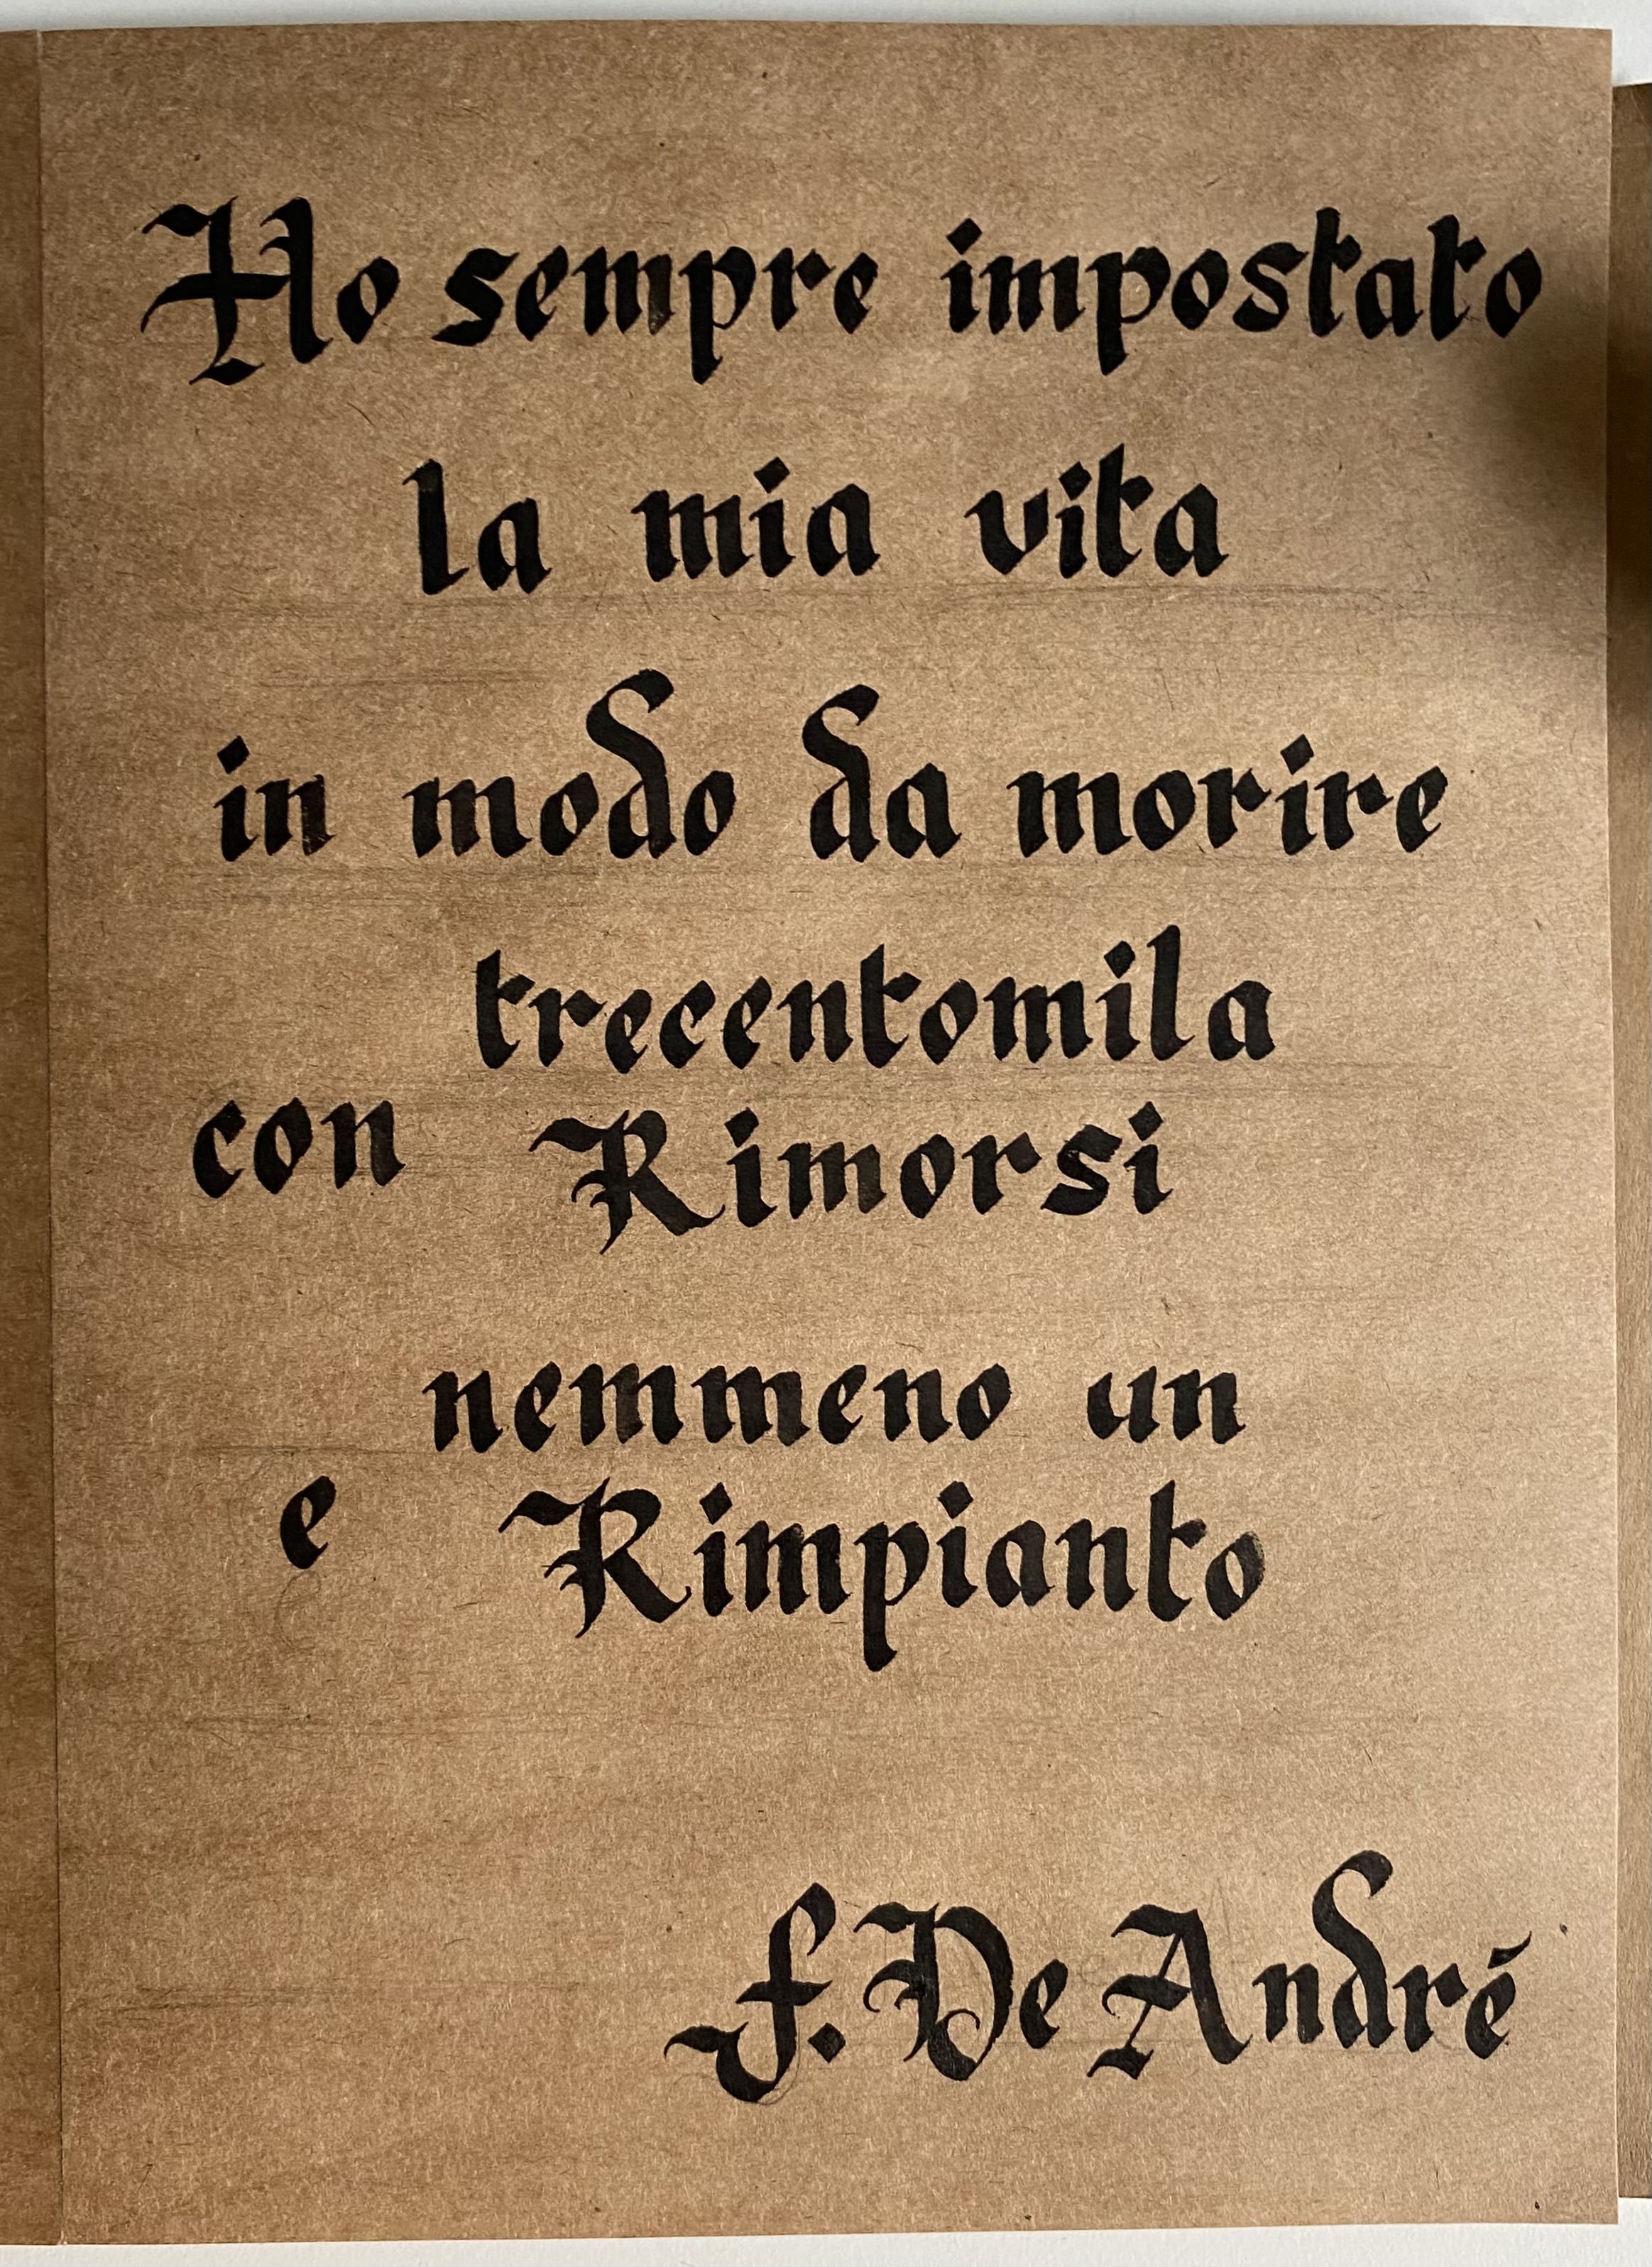 Ho sempre impostato
la mia vita
in modo da morire
trecentomila
con Rimorsi
nemmeno un
e Rimpianto
F. De André